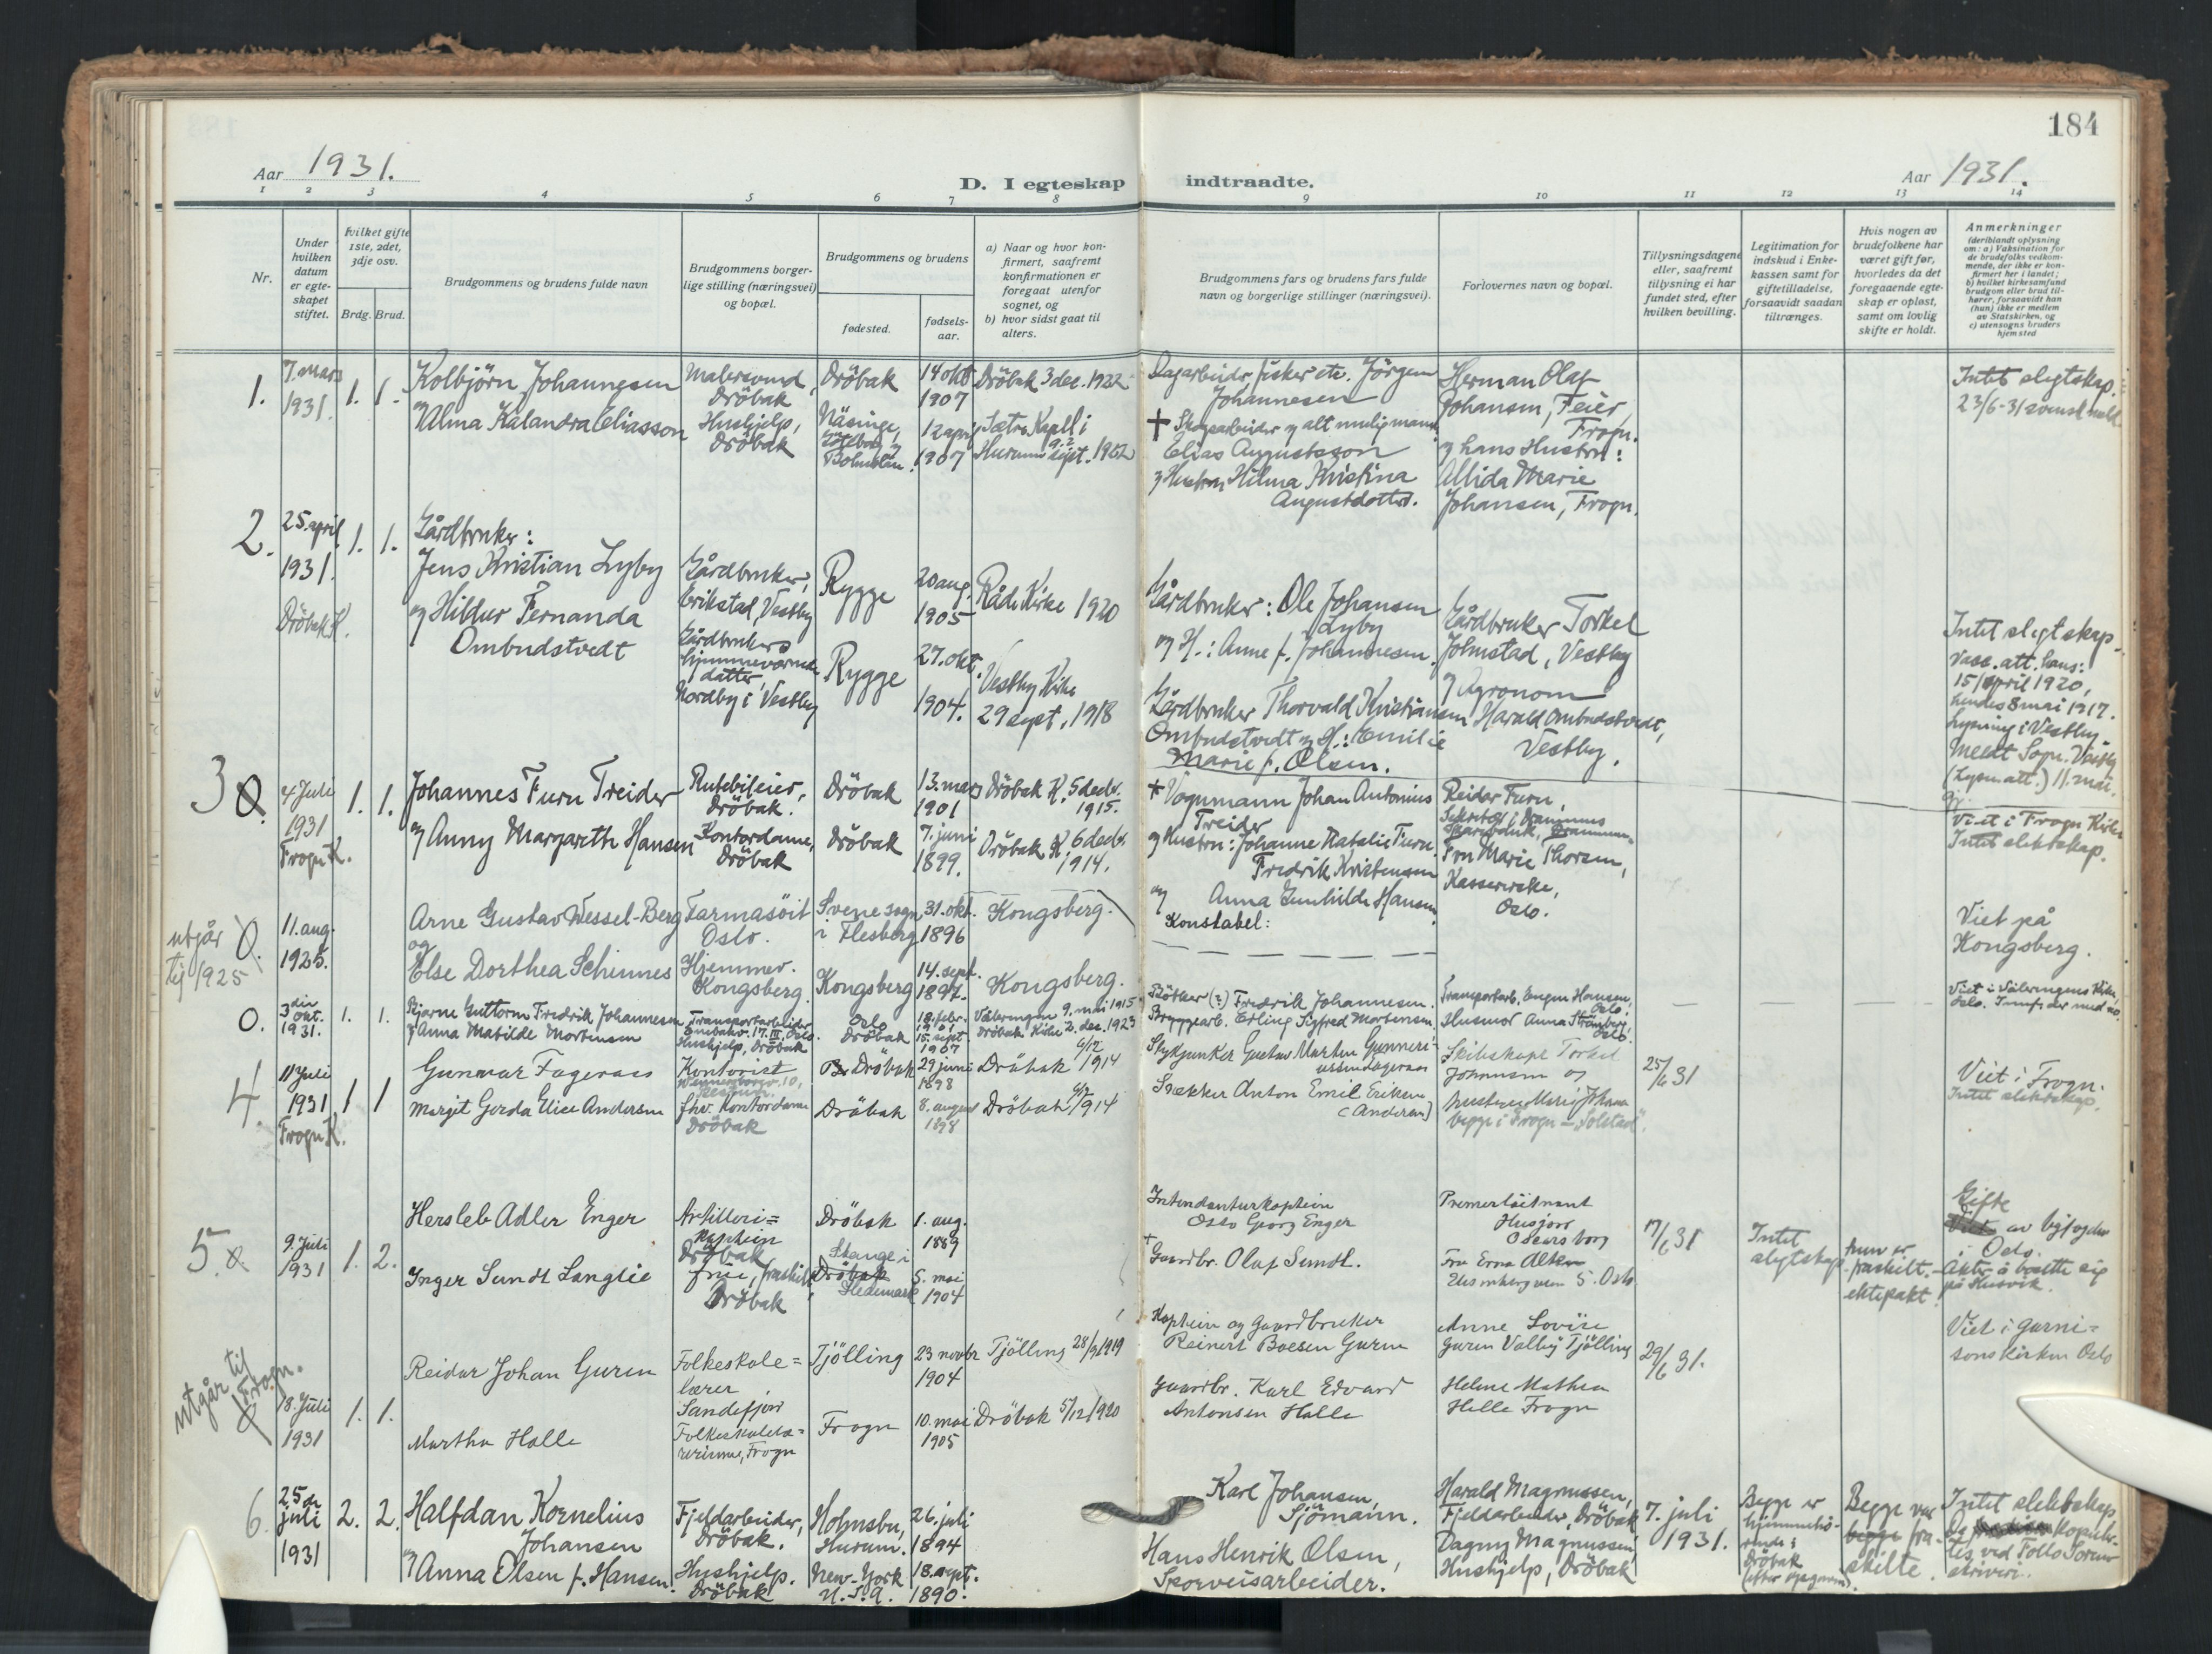 184
Aar 1931.
D. I egteskap indtraadte.
Aar 1931.
1 2 3 4 5 6 7 8 9 10 11 12 13 14
Nr.
Under hvilken datum er egteskapet stiftet.
Hvilket gifte 1ste, 2det, 3dje osv.
Brdg. Brud.
Brudgommens og brudens fulde navn
Brudgommens borgerlige stilling (næringsvei) og bopæl.
Brudgommens og brudens
fødested.
fødselsaar.
a) Naar og hvor konfirmert, saafremt konfirmationen er foregaat utenfor sognet, og
b) hvor sidst gaat til alters.
Brudgommens fars og brudens fars fulde navn og borgerlige stillinger (næringsvei).
Forlovernes navn og bopæl.
Tillysningsdagene eller, saafremt tillysning ei har fundet sted, efter hvilken bevilling.
Legitimation for indskud i Enkekassen samt for giftetilladelse, forsaavidt saadan tiltrænges.
Hvis nogen av brudefolkene har været gift før, hvorledes da det foregaaende egteskap er opløst, samt om lovlig skifte er holdt.
Anmerkninger
(deriblandt oplysning om: a) Vaksination for de brudefolks vedkommende, der ikke er konfirmert her i landet;
b) hvilket kirkesamfund brudgom eller brud tilhører, forsaavidt han (hun) ikke er medlem av Statskirken, og
c) utensogns bruders hjemsted
1.
7. mars
1931.
1. 1.
Kolbjörn Johannesen
og Alma Kalandra Eliasson
Malersvend,
Dröbak
Hushjelp,
Dröbak
Dröbak
Näsinge,
14 okt
1907
12 april
1907
Dröbak 3 dec. 1922
Sætre Kapell i
Hurum sept. 1922
Dagarbeider, fisker etc. Jörgen
Johannesen
† Skogsarbeider og alt mulig mann
Elias Augustsson
og Hustru Hilma Kristina
Augustdotter.
Herman Olaf
Johansen, Feier,
Frogn.
og hans Hustru:
Allida Marie
Johansen, Frogn.
Intet slegtskap.
23/6-31 svensk
2.
25. april
1931.
Dröbak K.
1. 1.
Gårdbruker:
Jens Kristian Lyby
og Hildur Fernanda
Ombudstvedt
Gårdbruker,
Erikstad, Vestby
Gårdbrukers
hjemmeværende
datter,
Nordby i Vestby
Rygge
Rygge
20 aug.
1905
27. okt.
1904.
Råde Kirke 1920
Vestby Kirke
29 sept. 1918
Gårdbruker: Ole Johansen
Lyby
og H.: Anne f. Johannesen.
Gårdbruker Thorvald Kristiansen
Ombudstvedt og H.: Emilie
Marie f. Olsen.
Gårdbruker Torkel
Johnstad, Vestby
og Agronom
Harald Ombudstvedt,
Vestby.
Intet slegtskap.
Vacc. att. hans:
15/april 1920,
hendes 8 mai 1917.
Lysning i Vestby.
Meldt Sogn. Vestby
(Lysn. att.) 11. mai.
3
4 Juli
1931
Frogn K.
1. 1.
Johannes Furu Treider
og Anny Margarethe Hansen
Rutebileier,
Dröbak.
Kontordame,
Dröbak
Dröbak
Dröbak
13. mars
1901
7. juni
1899.
Dröbak K. 5 decbr.
1915.
Dröbak K. 6 decbr.
1914.
† Vognmann Johan Antonius
Treider
og Hustru: Johanne Natalie Furu.
Fredrik Kristensen
og Anna Gunhilde Hansen
Konstabel:
Reidar Furu,
Sekretær i Drammens
Sparebank, Drammen
Fru Marie Thorsen,
Kassererske,
Oslo.
Viet i Frogn Kirke
Intet slektskap.
utgår
til 1925
0.
11. aug.
1925.
Arne Gustav Wessel-Berg
og
Else Dorthea Schinnes
Farmasöit
Oslo.
Hjemmev.
Kongsberg.
Svene sogn
i Flesberg
Kongsberg
31. okt.
1896
14. sept.
1897.
Kongsberg.
Kongsberg.
Viet på
Kongsberg.
0.
3die
okt.
1931.
1. 1.
Bjarne Guttorm Fredrik Johannesen
og Anna Matilde Mortensen
Transportarbeider
Hushjelp, Dröbak
Oslo
Dröbak
15. sept.
1907
Vålerengen 9. mai 1915
Dröbak Kirke 2. dec. 1923
Bötker (?) Fredrik Johannesen.
Bryggearb. Erling Sigfred Mortensen
Transportarb. Hansen,
Oslo.
Husmor Anna Strömberg,
Oslo.
Viet i Vålerengens Kirke,
Oslo.
4.
11 Juli
1931
Frogn K.
1 1
Gunnar Fageraas
Margit Gerda Elise Andersen
Kontorist
fhv. Kontordame
Dröbak
Dröbak
Dröbak
29 juni
1898
8. august
1898
Dröbak 1914
Dröbak 1914
Stykjunker Gustav Marten
Anton Emil Eriksen
(Andersen)
Skibskapt. Torkel
Johannsen og
begge i Frogn "Solstad".
25/6 31
Viet i Frogn.
Intet slektskap.
5.
9. Juli
1931
1. 2.
Hersleb Adler Enger
Inger Sundt Langlie
Artilleri=
kaptein
Dröbak
frue, fraskilt
Dröbak
Dröbak
Stange i
Dröbak
Hedemark
1. aug.
1889
5. mai
1904
Intendanturkaptein
Osto Georg Enger
† Gaardbr. Olaf Sundt.
Premierlöitnant
Husjord
Oscarsborg
Fru Erna
5. Oslo
17/6 31
Intet
slegtskap
hun er
fraskilt.
ektepakt!
Gifte
Viet av byfogden
i Oslo.
Akter å bosette sig
på Husvik.
utgår til
Frogn.
18. Juli
1931
1. 1.
Reidar Johan Guren
Martha Halle
Folkeskole=
lærer,
Sandefjord
Folkeskolelæ=
rerinne, Frogn
Tjölling
Frogn
23 novbr
1904
10. mai
1905
Tjölling 28/9 1919
Dröbak 5/12 1920
Kaptein og Gaardbruker
Reinert Boesen Guren
Gaardbr. Karl Edvard
Antonsen Halle
Anne Lovise
Guren Valby Tjölling
Helene Mathea
Helle Frogn
29/6 31.
Viet i garni=
sonskirken Oslo
6.
25de
juli
1931
2. 2.
Halfdan Kornelius
Johansen
og Anna Olsen f. Hansen.
Fjeldarbeider,
Dröbak.
Hushjelp.
Dröbak
Holmsbu,
Hurum.
New-York
U.S.A.
26. juli
1894
18. sept.
1890.
Karl Johansen,
Sjömann.
Hans Henrik Olsen,
Sporveisarbeider.
Harald Magnussen,
Fjeldarbeider, Dröbak
Dagny Magnussen,
Hushjelp, Dröbak
7. juli
1931.
Begge er
hjemmehö-
rende i
Dröbak
(efter opgaven).
Begge var
begge fra-
skilte.
Intet slektskap
ved Follo Soren-
skriveri.